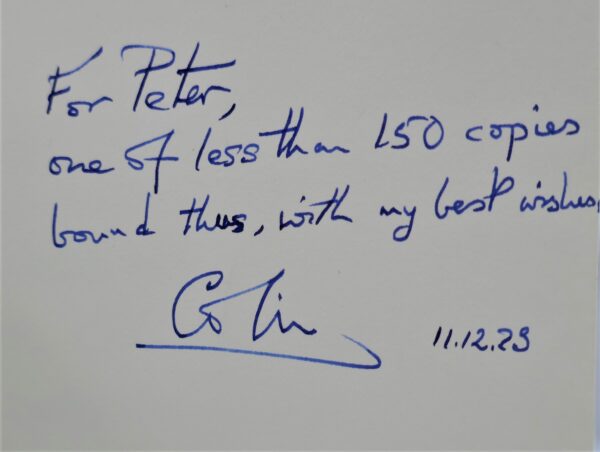 For Peter,
one of less than 150 copies
bound thus, with my best wishes,
Colin
11.12.23